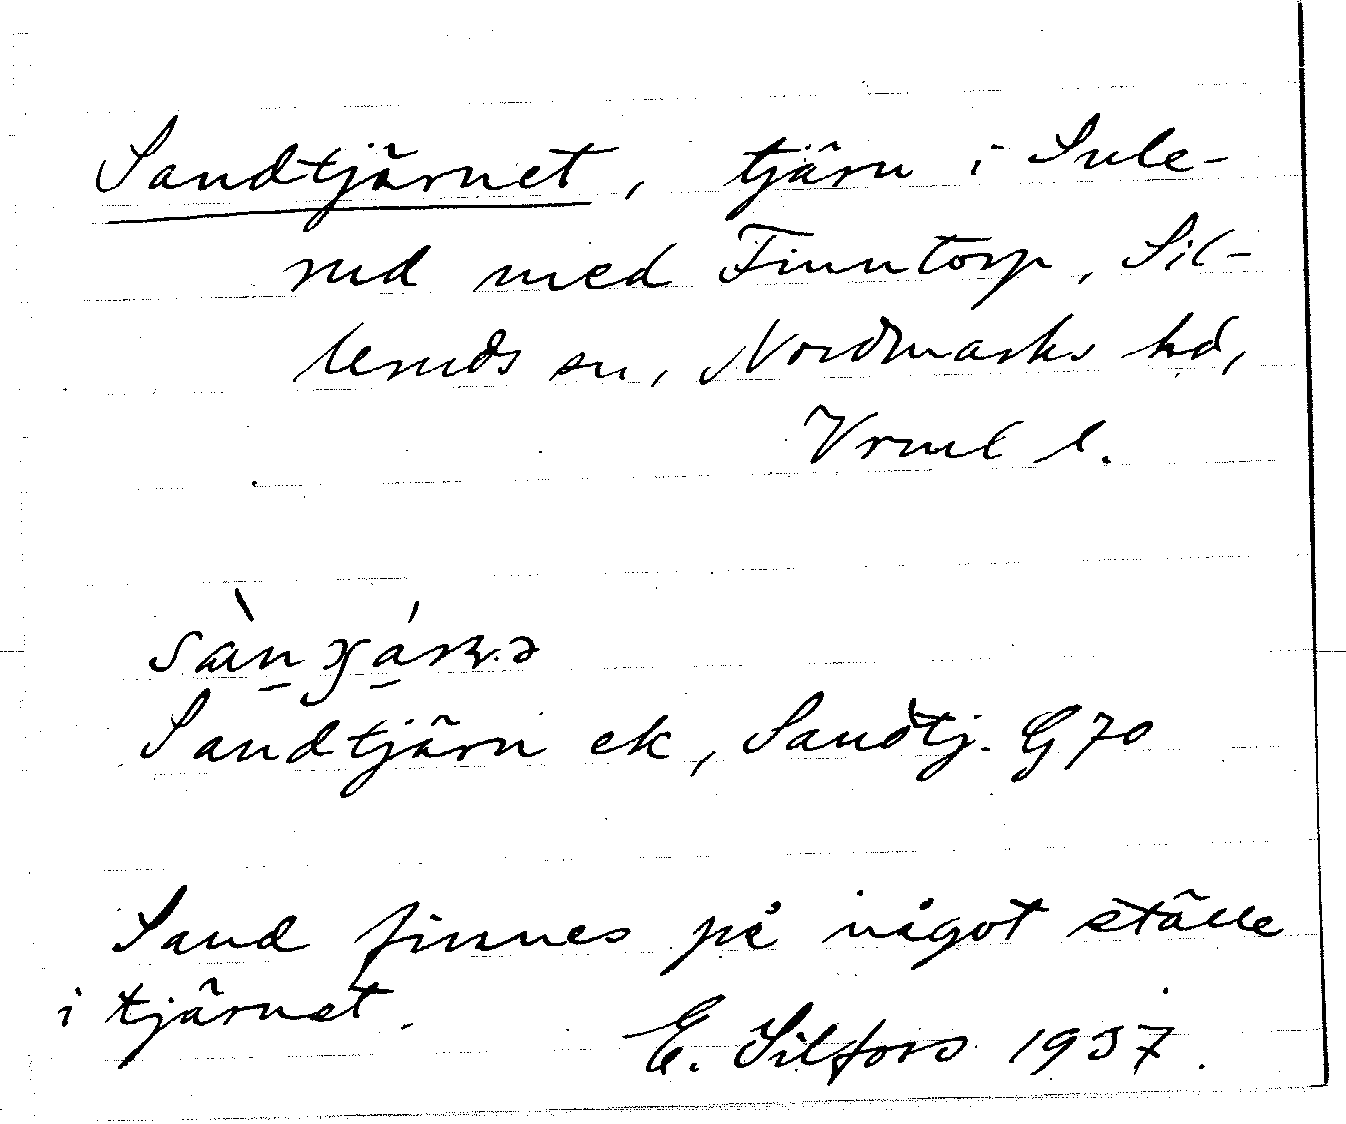 Sandtjärnet, tjärn i Sule-
rud med Finntorp, Sil-
leruds sn, Nordmarks hd,
Vrml l.
Sandtjärn ek, Sandtj. G 70
Sand finnes på något ställe
i tjärnet.
E. Silfors 1937.